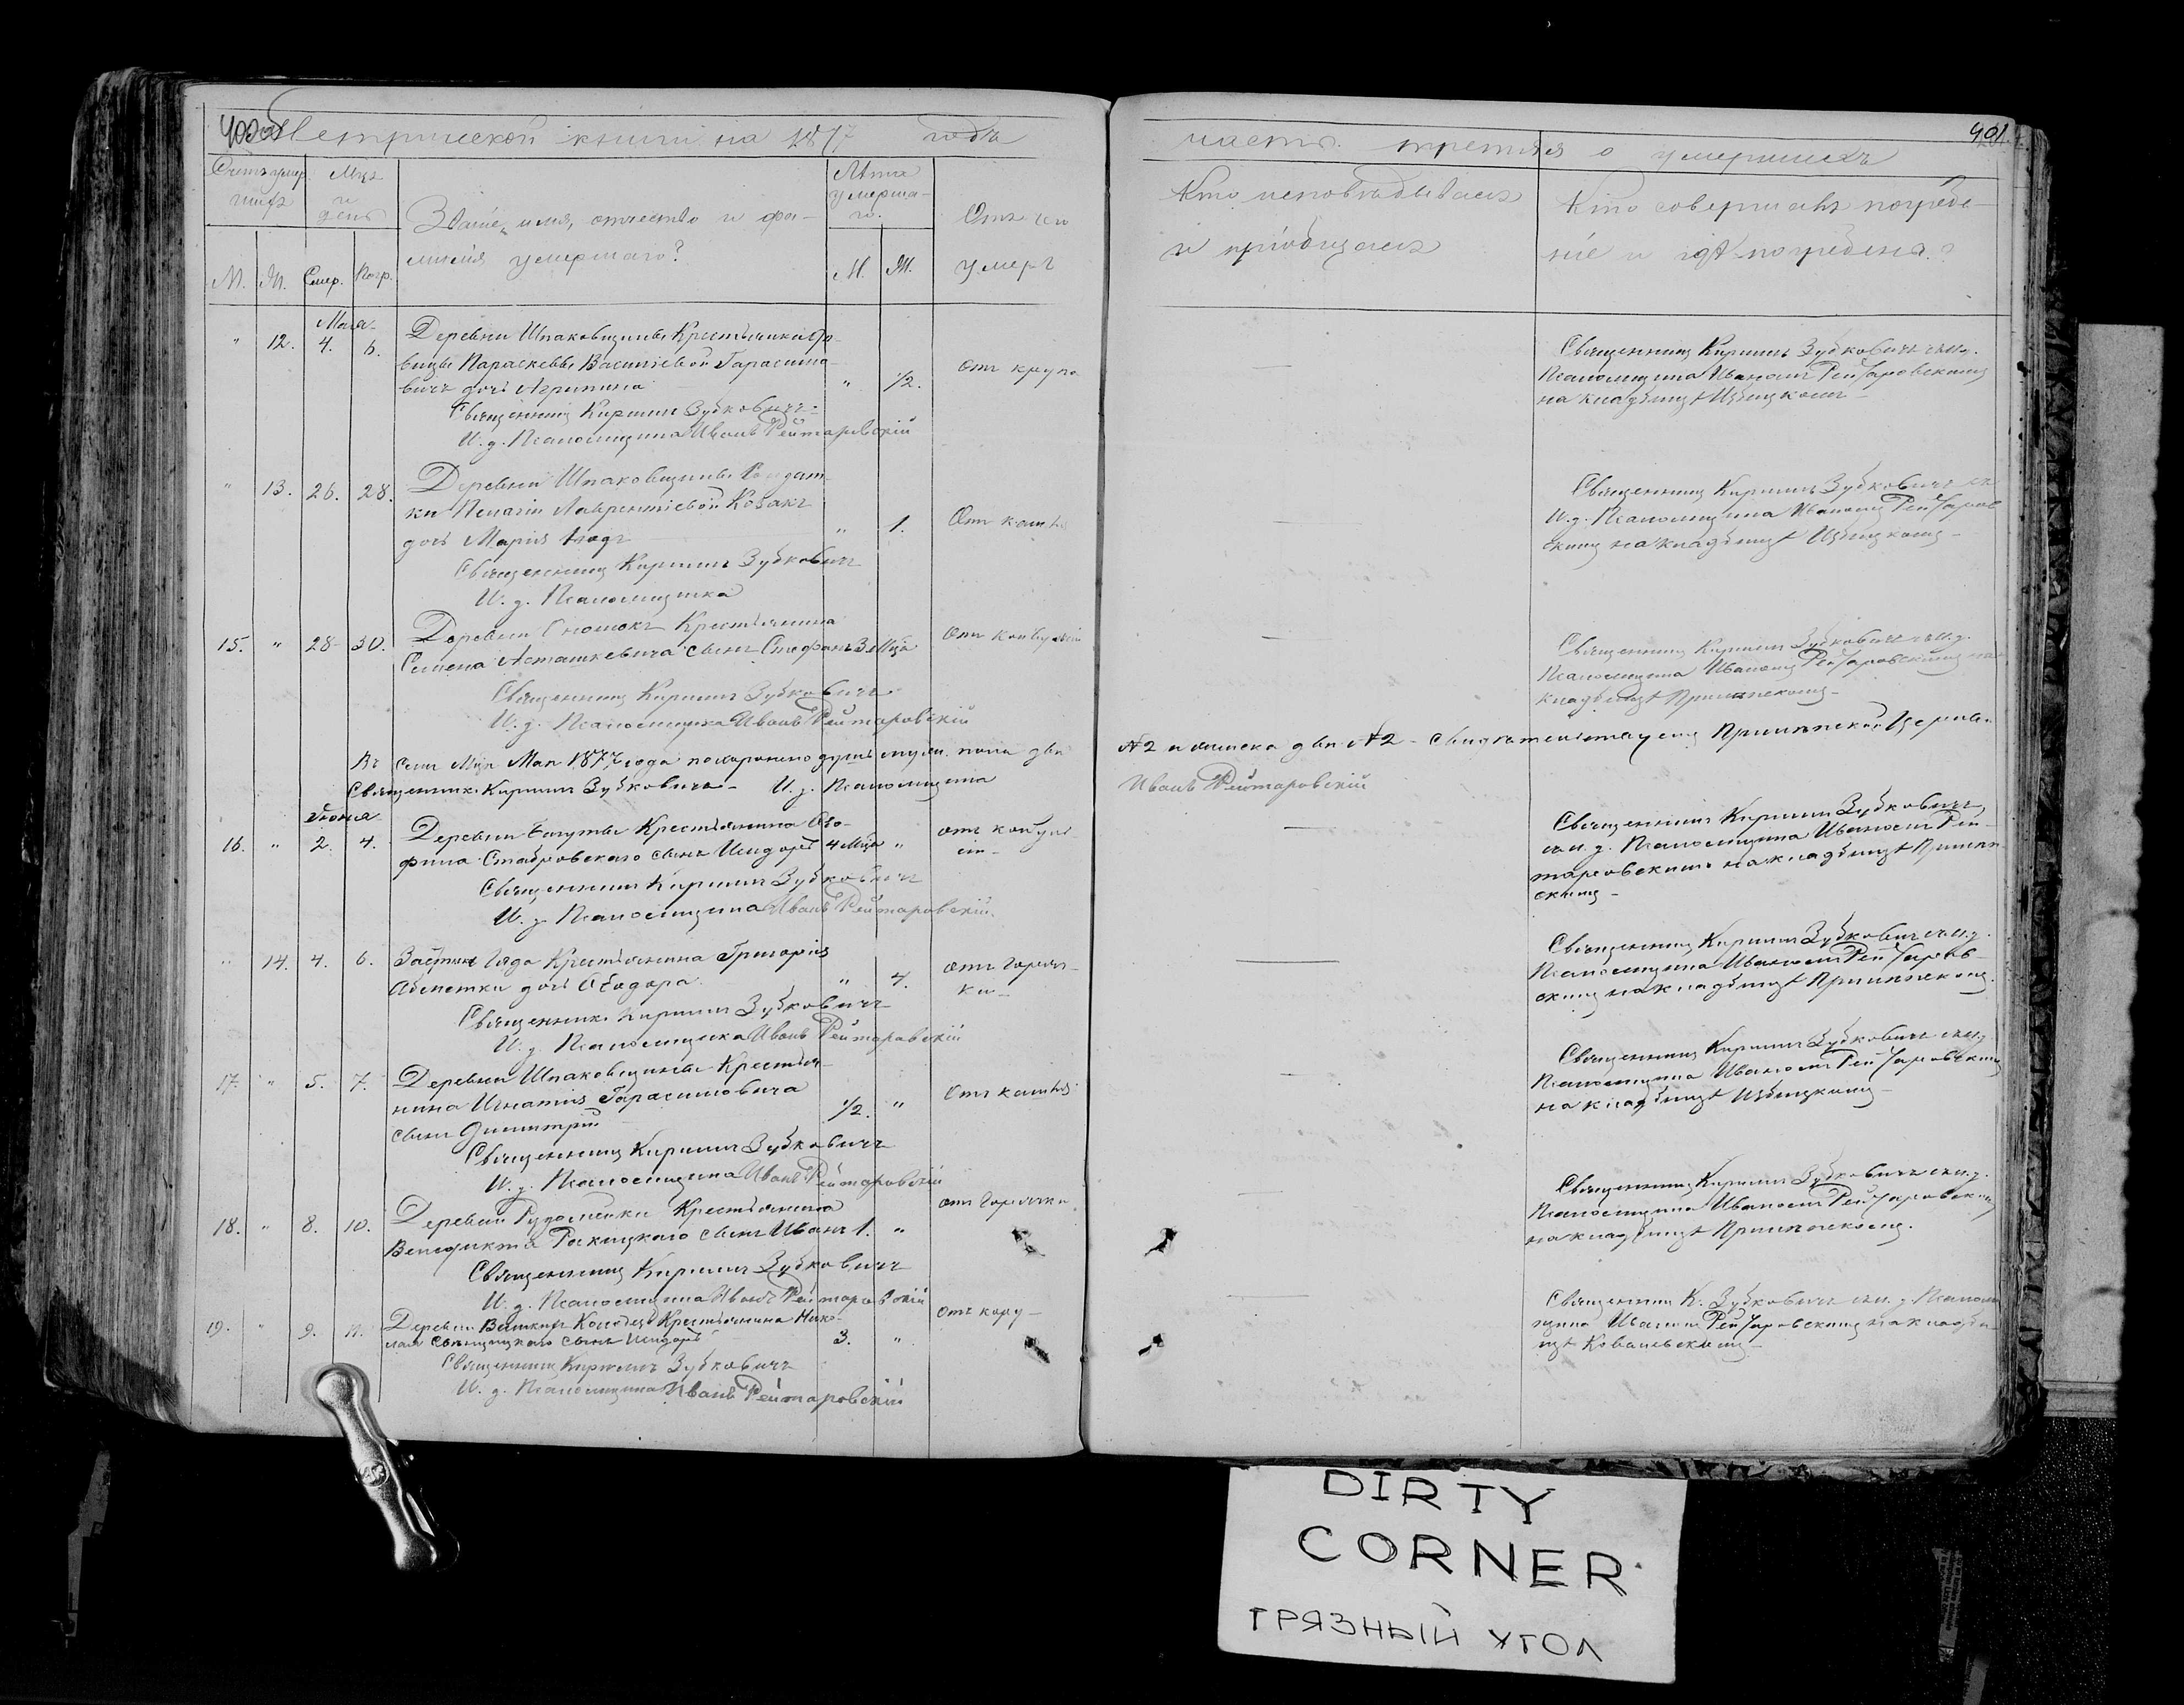 400об Метрической книги на 1877 годъ
Счетъ умер-
шихъ
Мцъ
и
день
Званіе, имя, отчество и фа-
милія умершаго?
Лѣта
умерша-
го.
Отъ чего
умеръ
М. Ж. Смер. Погр. М. Ж.
Мая
" 12. 4. 6. Деревни Шпаковщины Крестьянки
вицы Параскевы Васильевой Гарасимо-
вичъ дочь Агрипина " 1/2. Отъ крупа
Священникъ Кириллъ Зубковичъ
И. д. Псаломщика Иванъ Рейтаровскій
" 13. 26. 28. Деревни Шпаковщины Солдат-
ки Пелагіи Лаврентіевой Козакъ
дочь Марія " 1. Отъ кашля
Священникъ Кириллъ Зубковичъ
И. д. Псаломщика
15. " 28 30. Деревни Крестьянина
Семена Асташкевича сынъ Стефанъ 3 Мца Отъ конвульсіи
Священникъ Кириллъ Зубковичъ
И. д. Псаломщика Иванъ Рейтаровскій
Въ семъ Мцѣ Маѣ 1877 года похоронено душъ муж. пола двѣ
Священникъ Кириллъ Зубковичъ И. д. Псаломщика
Іюня
16. " 2. 4. Деревни Крестьянина Ѳео-
фила Стабровскаго сынъ Исидоръ 4 Мца " отъ конвуль-
сіи
Священникъ Кириллъ Зубковичъ
И. д. Псаломщика Иванъ Рейтаровскій.
" 14. 4. 6. Застѣнка Крестьянина Григорія
дочь Ѳеодора " 4. отъ горяч-
ки
Священникъ Кириллъ Зубковичъ
И. д. Псаломщика Иванъ Рейтаровскій
17. " 5. 7. Деревни Шпаковщины Крестья-
нина Игнатія Гарасимовича
сынъ Димитрій 1/2. " Отъ кашля
Священникъ Кириллъ Зубковичъ
И. д. Псаломщика Иванъ Рейтаровскій
18. " 8. 10. Деревни Крестьянина
Венедикта Ракицкаго сынъ Иванъ 1. " отъ горячки
Священникъ Кириллъ Зубковичъ
И. д. Псаломщика Иванъ Рейтаровскій
19. " 9. 11. Деревни Крестьянина Нико-
лая сынъ Исидоръ 3. " отъ кору-
Священникъ Кириллъ Зубковичъ
И. д. Псаломщика Иванъ Рейтаровскій
401.
часть третья о умершихъ
Кто исповѣдывалъ
и пріобщалъ
Кто совершалъ погребе-
ніе и гдѣ погребены?
Священникъ Кириллъ Зубковичъ съ и. д.
Псаломщика Иваномъ Рейтаровскимъ
на кладбищѣ
Священникъ Кириллъ Зубковичъ съ
И. д. Псаломщика Иваномъ Рейтаров
скимъ на кладбищѣ
Священникъ Кириллъ Зубковичъ съ и. д.
Псаломщика Иваномъ Рейтаровскимъ на
кладбищѣ
№2 и женска двѣ №2 - свидѣтельствуемъ Церкви
Иванъ Рейтаровскій
Священникъ Кириллъ Зубковичъ
съ и. д. Псаломщика Иваномъ Рей-
таровскимъ на кладбищѣ
скимъ
Священникъ Кириллъ Зубковичъ съ и. д.
Псаломщика Иваномъ Рейтаров-
скимъ на кладбищѣ
Священникъ Кириллъ Зубковичъ съ и. д.
Псаломщика Иваномъ Рейтаровскимъ
на кладбищѣ
Священникъ Кириллъ Зубковичъ съ и. д.
Псаломщика Иваномъ Рейтаровскимъ
на кладбищѣ
Священникъ К. Зубковичъ съ и. д. Псалом
щика Иваномъ Рейтаровскимъ на кладби
щѣ Ковалевскомъ
DIRTY
CORNER
ГРЯЗНЫЙ УГОЛ